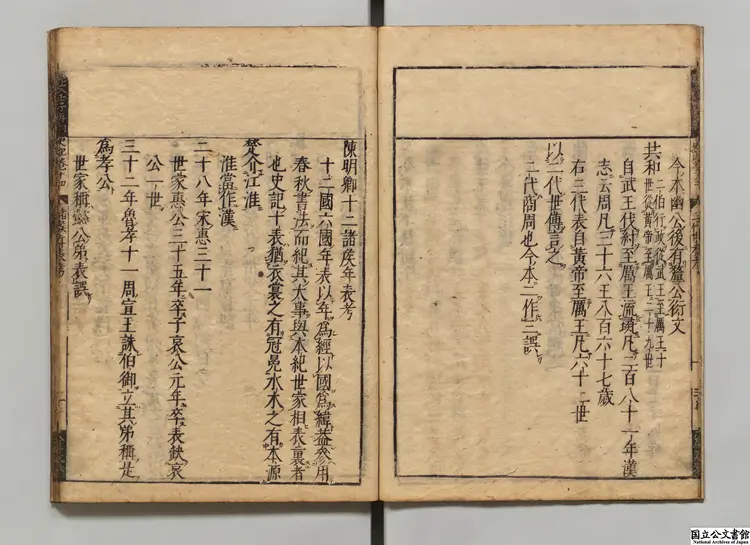 今本幽公後有釐公衍文
共和 二伯行政從武王至厲王十
世從黃帝至厲王三十九世
自武王伐紂至厲王流彘凡二百八十一年漢
志云周凡三十六王八百六十七歲
右三代表自黃帝至厲王凡六十二世
以二代世傳言之
二代商周也今本二作三誤
陳明卿十二諸侯年表考
十二國六國年表以年爲經以國爲緯益參用
春秋書法而紀其大事與本紀世家相表裏者
也史記十表猶衣裳之有冠冕水木之有本源
楚介江淮
淮當作漢
二十八年宋惠三十一
世家惠公三十五年卒子哀公元年卒表缺哀
公一世
三十二年魯孝十一周宣王誅伯御立其弟稱是
爲孝公
世家稱懿公弟表誤
国立公文書館
National Archives of Japan